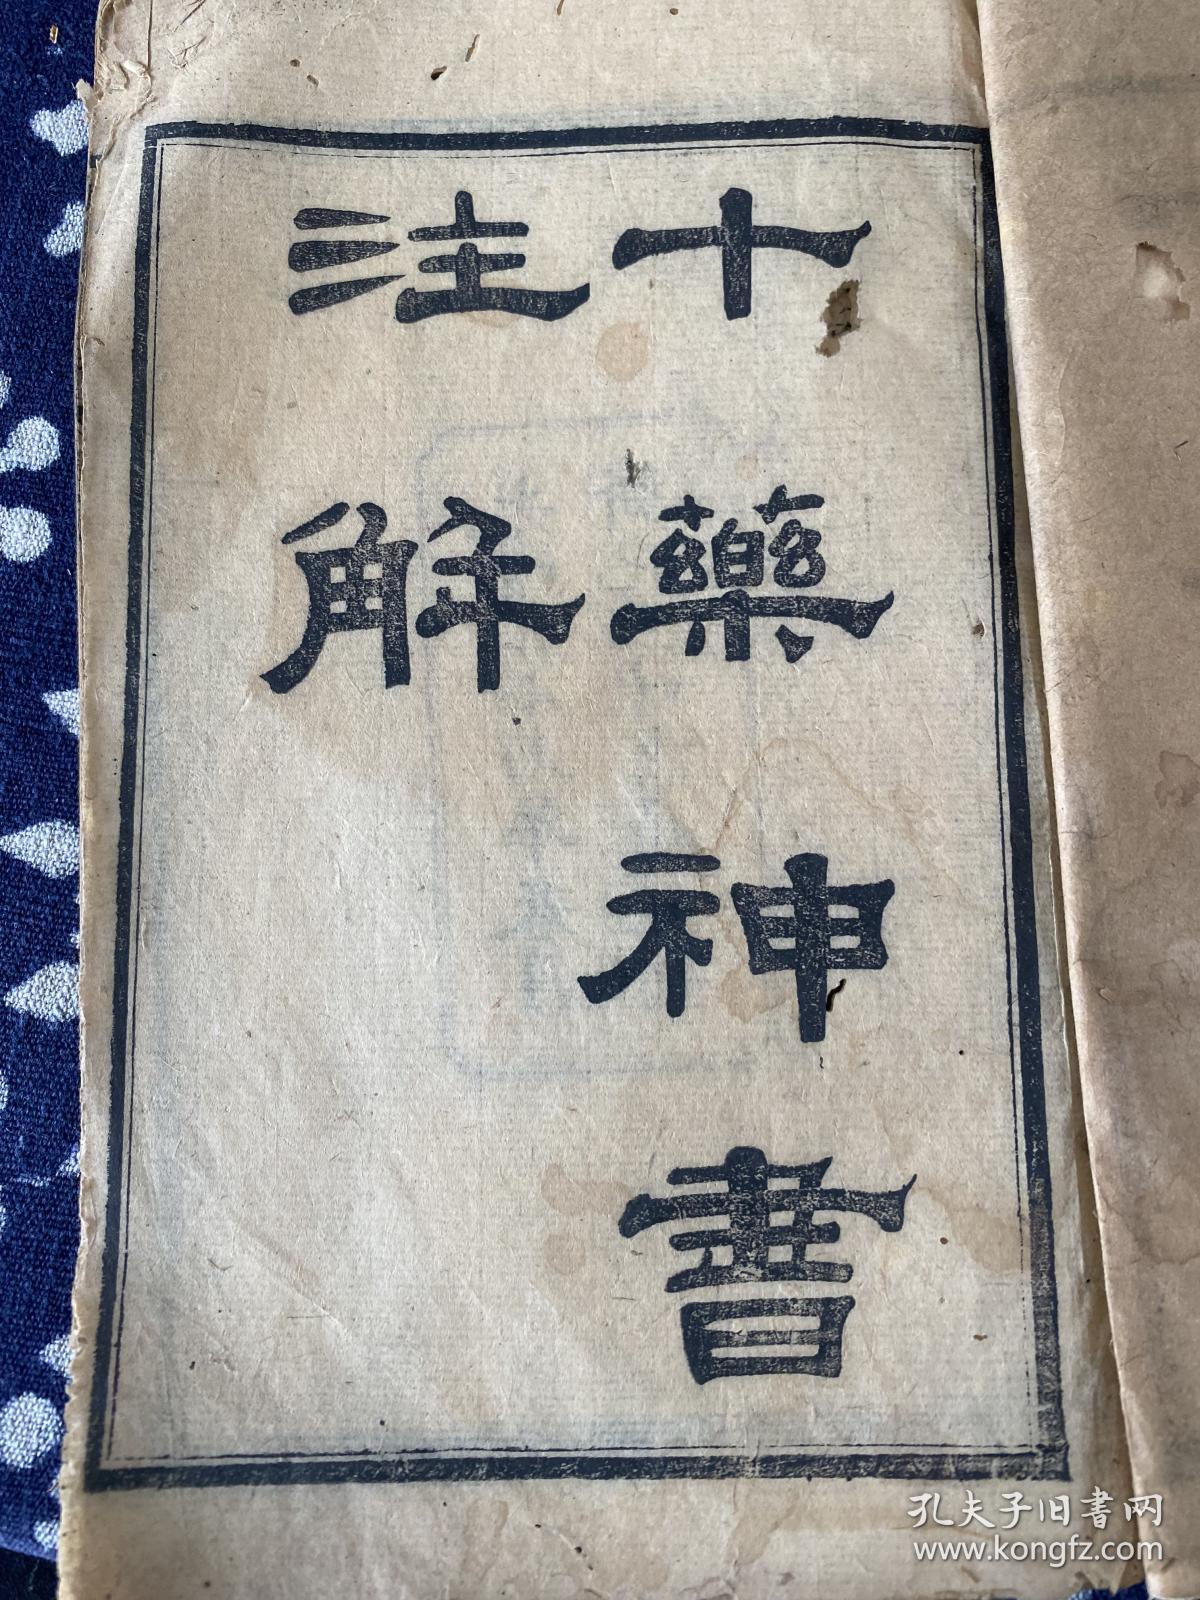 十藥神書
注解
孔夫子旧書网
www.kongfz.com